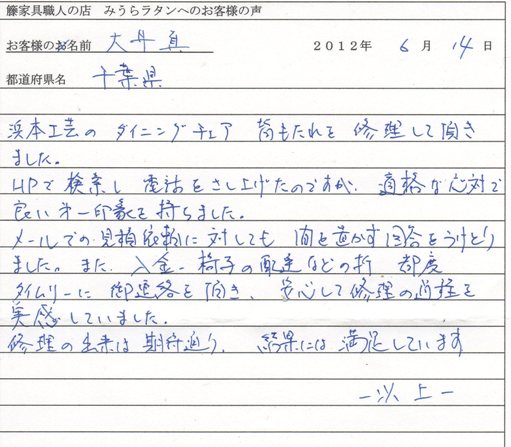 籐家具職人の店 みうらラタンへのお客様の声
お客様のお名前 大丹 真 2012年 6月 14日
都道府県名 千葉県
浜本工芸の ダイニングチェア 背もたれを 修理して頂き
ました。
HPで検索し 電話をさし上げたのですが、適格な応対で
良い第一印象を持ちました。
メールでの見積依頼に対しても 間を置かず回答をうけとり
ました。また、入金、椅子の配送などの折 都度
タイムリーに御連絡を頂き、安心して修理の過程を
実感していました。
修理の出来は期待通り、結果には満足しています
ー以上ー